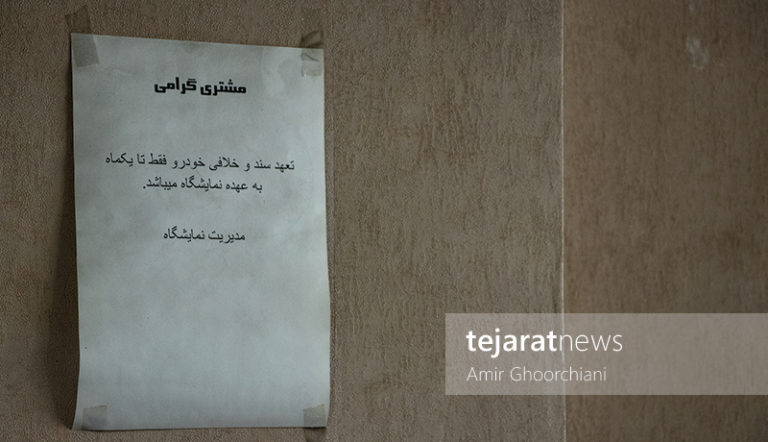 مشتری گرامی
تعهد سند و خلافی خودرو فقط تا یکماه
به عهده نمایشگاه میباشد.
مدیریت نمایشگاه
tejaratnews
Amir Ghoorchiani